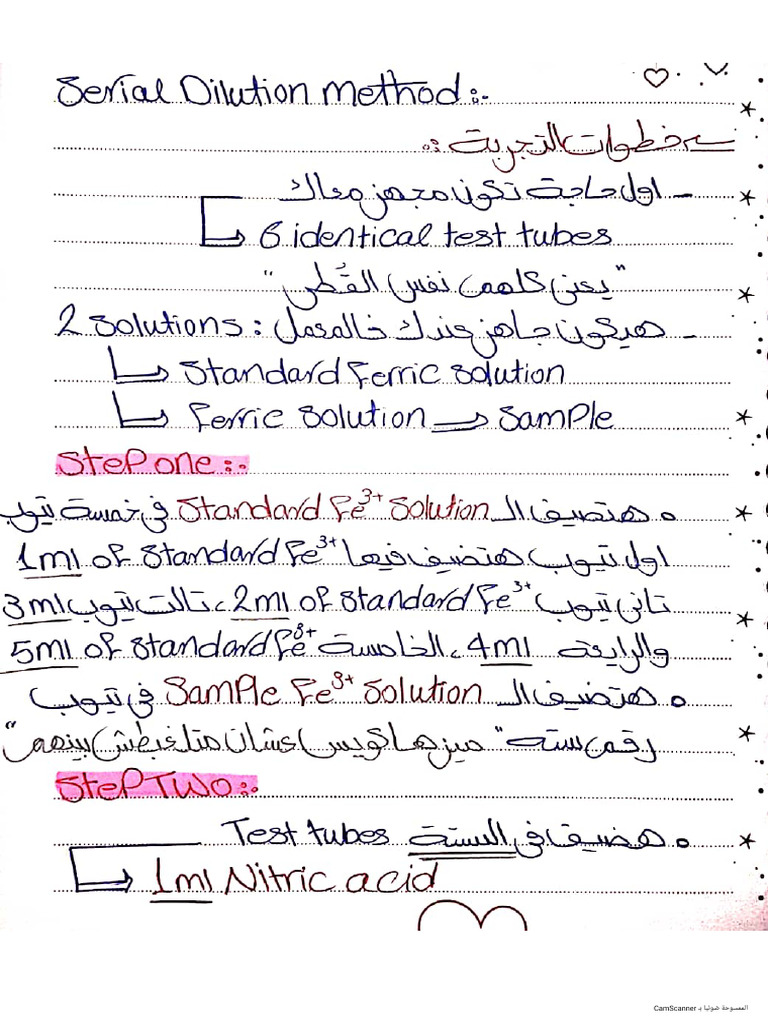 Serial Dilution method:-
خطوات التجربة :-
- اول حاجة تكون مجهز معاك
6 identical test tubes
"يعنى كلهم نفس القُطر"
- هيكون جاهز عندك فالمعمل : 2 solutions
Standard Ferric solution
Ferric solution → Sample
Step one:-
• هتضيف الـ Standard Fe³⁺ Solution فى خمسة تيوب
اول تيوب هتضيف فيها 1ml of Standard Fe³⁺
تانى تيوب 2ml of Standard Fe³⁺ ، تالت تيوب 3ml
والرابعة 4ml ، الخامسة 5ml of Standard Fe³⁺
• هتضيف الـ Sample Fe³⁺ Solution فى تيوب
رقم سته "ميزها كويس عشان متلخبطش بينهم"
Step Two:-
• هضيف فى الستة Test tubes
1ml Nitric acid
الممسوحة ضوئيا بـ CamScanner